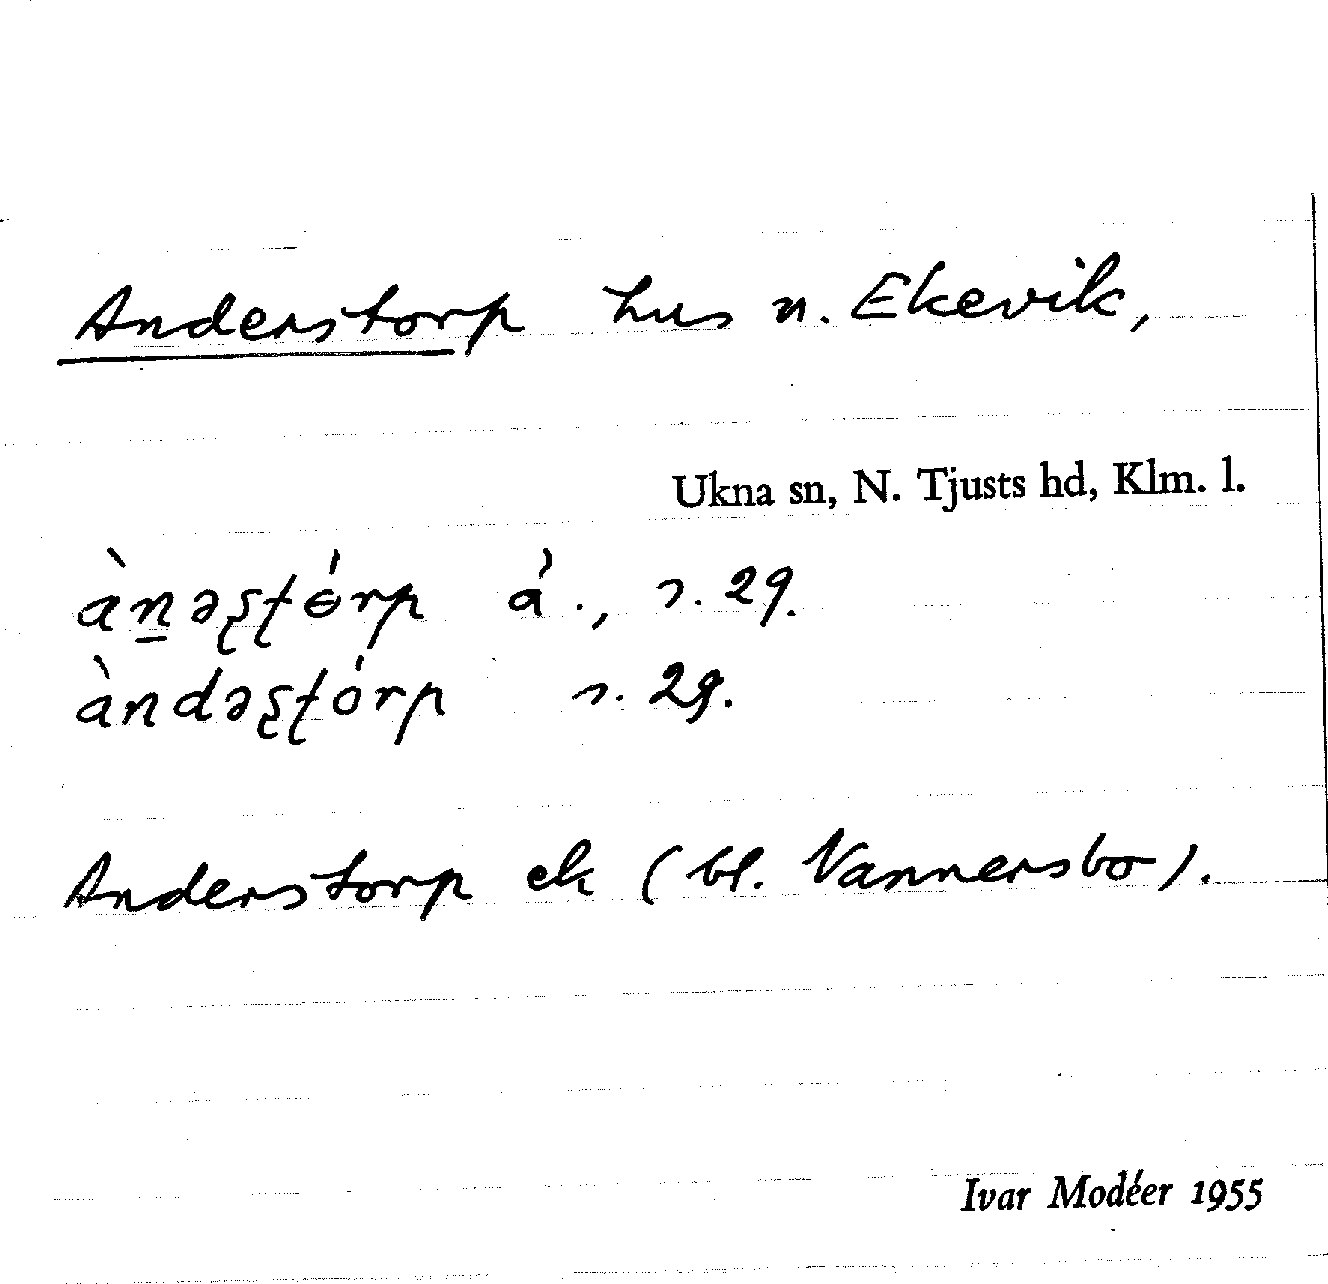 Anderstorp hus n. Ekevik,
Ukna sn, N. Tjusts hd, Klm. l.
àn̲əʂʈɵ́rp á., s. 29.
àndəʂʈórp s. 29.
Anderstorp ek (bl. Vannersbo).
Ivar Modéer 1955